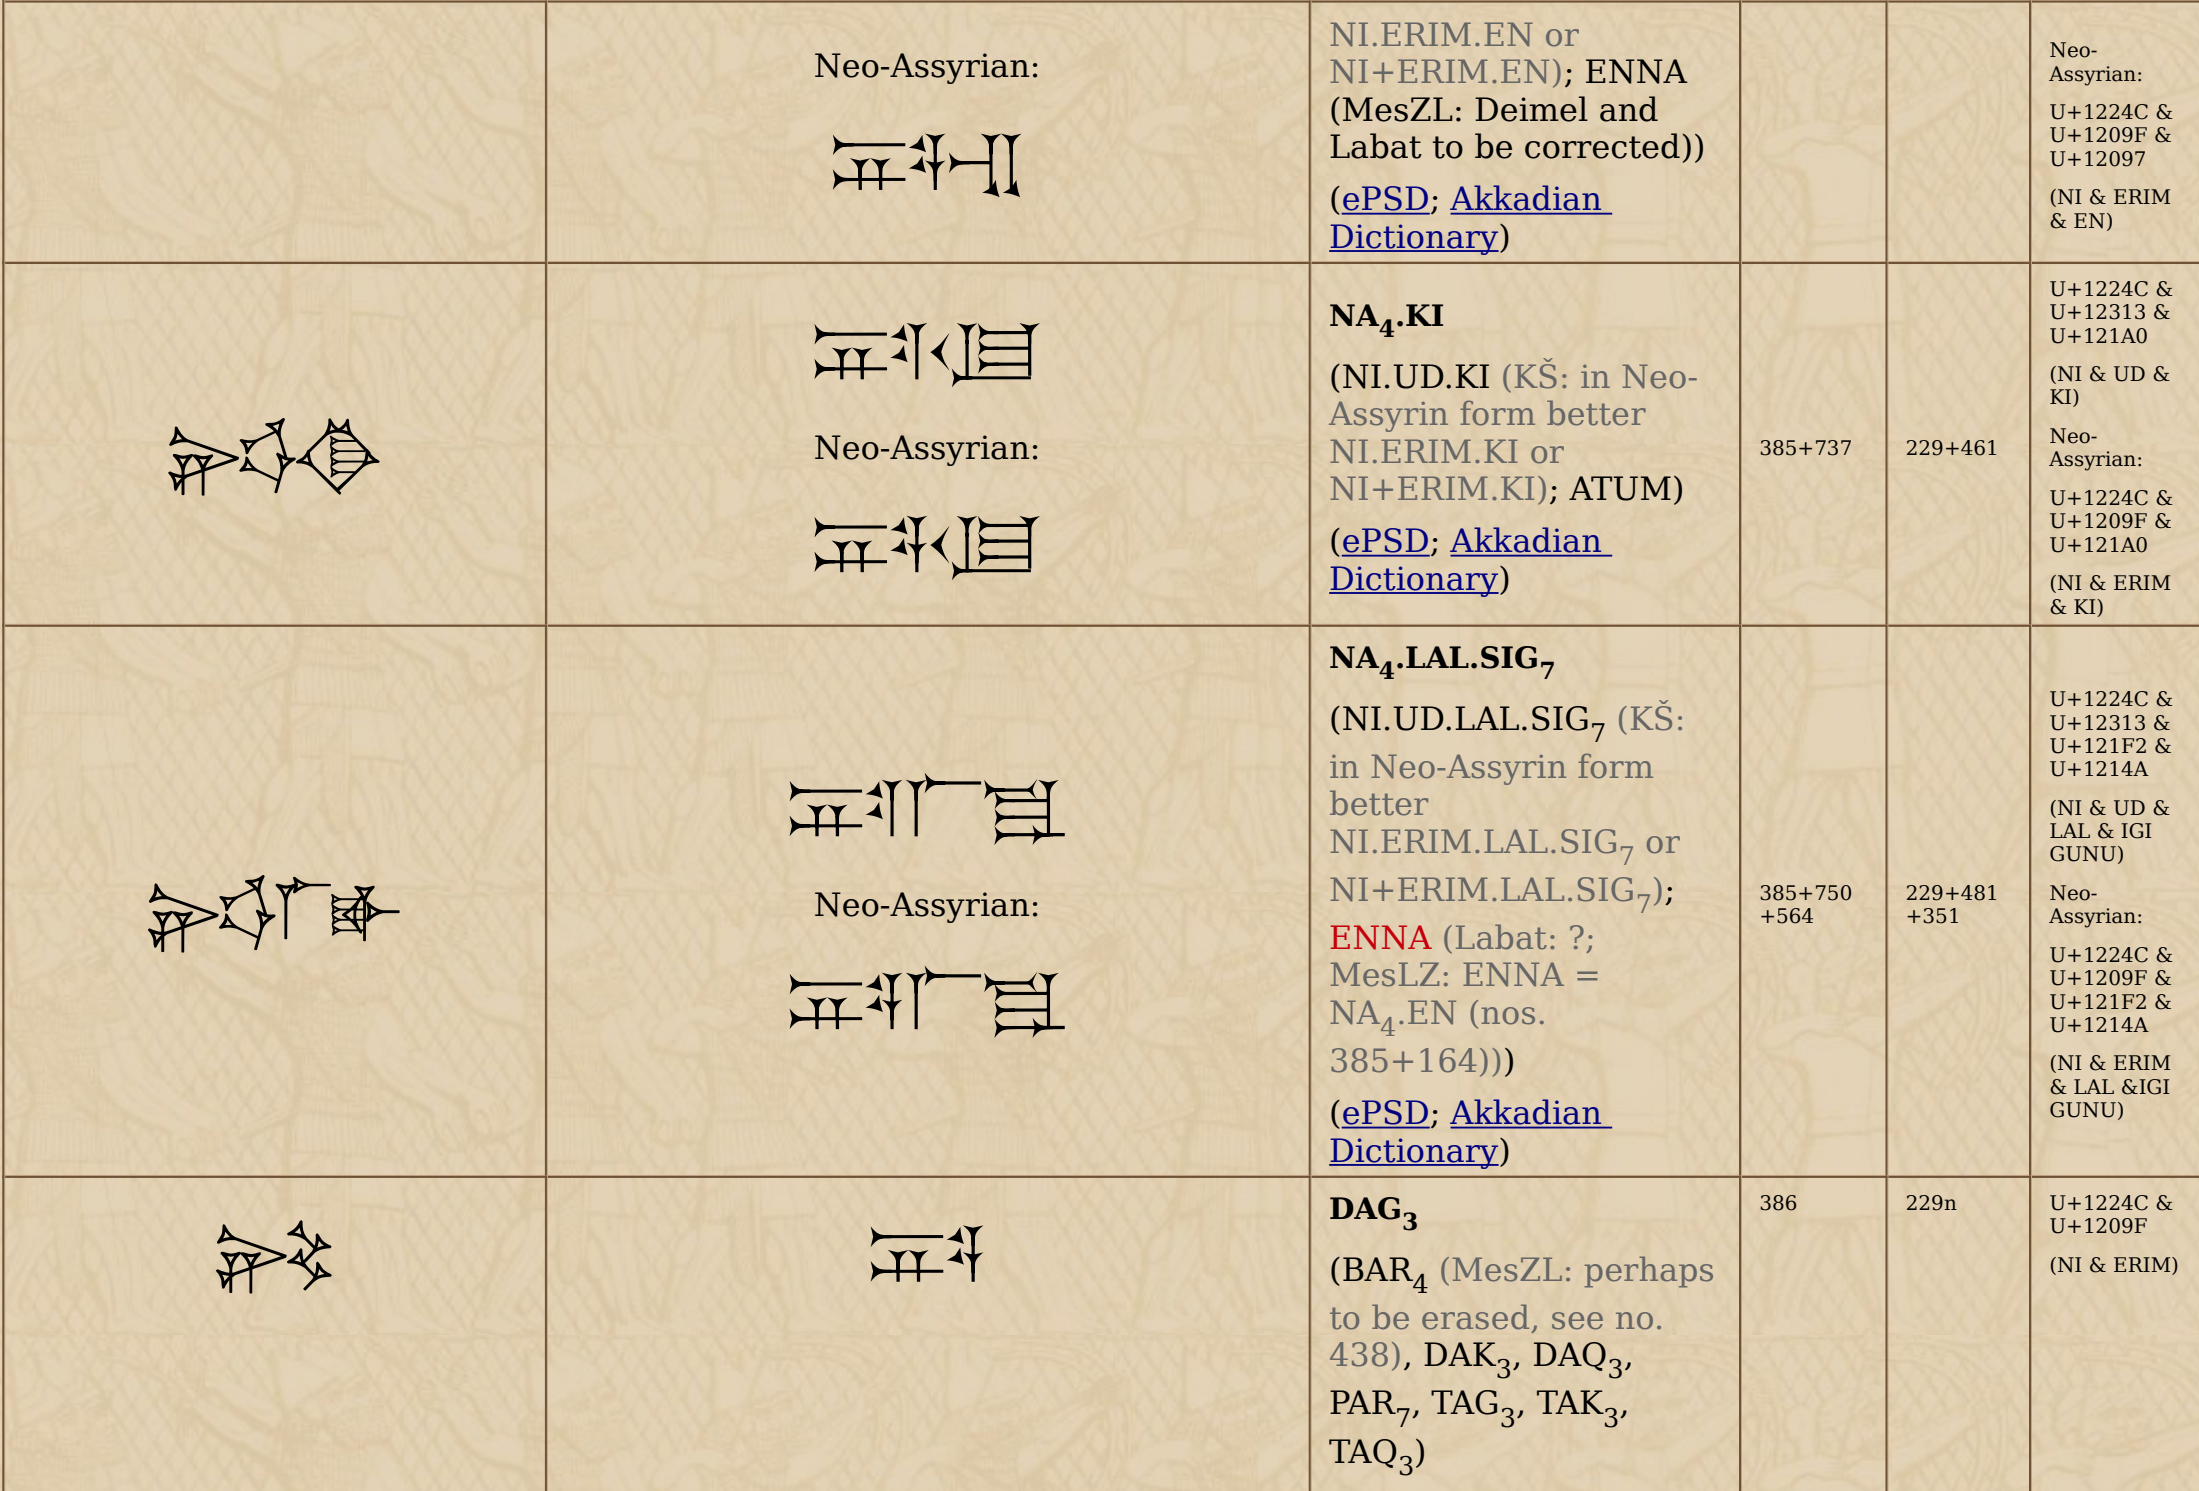 Neo-Assyrian:
𒉌𒂟𒂗
NI.ERIM.EN or
NI+ERIM.EN); ENNA
(MesZL: Deimel and
Labat to be corrected))
(ePSD; Akkadian
Dictionary)
Neo-
Assyrian:
U+1224C &
U+1209F &
U+12097
(NI & ERIM
& EN)
𒉌𒌓𒆠
𒉌𒌓𒆠
Neo-Assyrian:
𒉌𒂟𒆠
NA₄.KI
(NI.UD.KI (KŠ: in Neo-
Assyrin form better
NI.ERIM.KI or
NI+ERIM.KI); ATUM)
(ePSD; Akkadian
Dictionary)
385+737
229+461
U+1224C &
U+12313 &
U+121A0
(NI & UD &
KI)
Neo-
Assyrian:
U+1224C &
U+1209F &
U+121A0
(NI & ERIM
& KI)
𒉌𒌓𒇲𒅊
𒉌𒌓𒇲𒅊
Neo-Assyrian:
𒉌𒂟𒇲𒅊
NA₄.LAL.SIG₇
(NI.UD.LAL.SIG₇ (KŠ:
in Neo-Assyrin form
better
NI.ERIM.LAL.SIG₇ or
NI+ERIM.LAL.SIG₇);
ENNA (Labat: ?;
MesLZ: ENNA =
NA₄.EN (nos.
385+164)))
(ePSD; Akkadian
Dictionary)
385+750
+564
229+481
+351
U+1224C &
U+12313 &
U+121F2 &
U+1214A
(NI & UD &
LAL & IGI
GUNU)
Neo-
Assyrian:
U+1224C &
U+1209F &
U+121F2 &
U+1214A
(NI & ERIM
& LAL &IGI
GUNU)
𒉌𒂟
𒉌𒂟
DAG₃
(BAR₄ (MesZL: perhaps
to be erased, see no.
438), DAK₃, DAQ₃,
PAR₇, TAG₃, TAK₃,
TAQ₃)
386
229n
U+1224C &
U+1209F
(NI & ERIM)